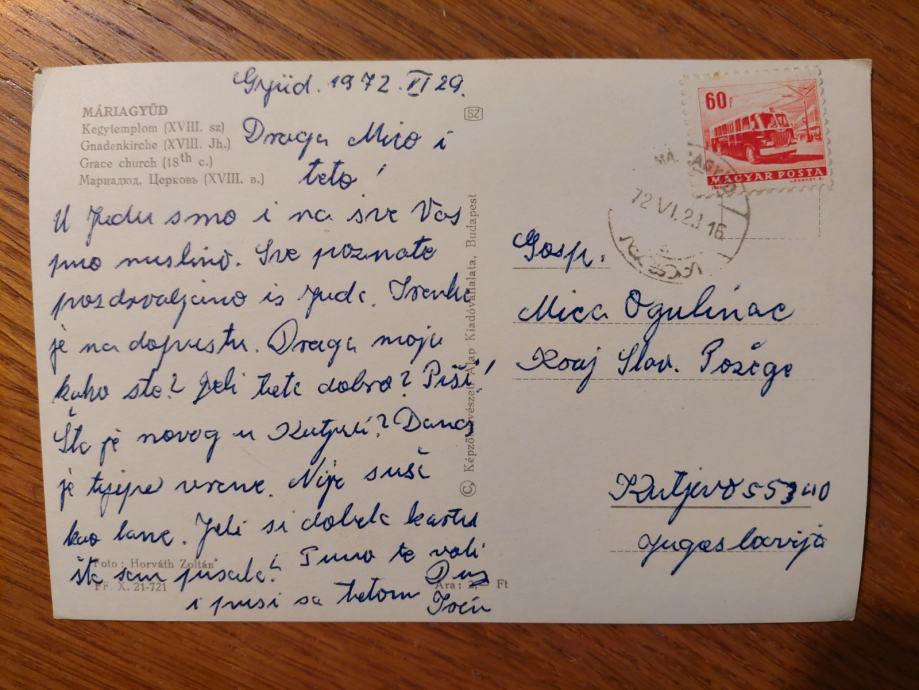 MÁRIAGYŰD
Kegytemplom (XVIII. sz)
Gnadenkirche (XVIII. Jh.)
Grace church (18th c.)
Мариадюд, Церковь (XVIII. в.)
Gyüd. 1972. VI 29.
Draga Mico i
teto!
U Judu smo i na sve Vas
puno mislimo. Sve poznate
pozdravljamo iz Juda. Irenka
je na dopustu. Draga moja
kako ste? Jeli teta dobro? Piši!
Šta je novog u Kutjevi? Danas
je lijepo vreme. Nije suša
kao lane. Jeli si dobila kartu
šta sam pisala? Puno te voli
i pusi sa tetom
Foto: Horváth Zoltán
FF. X. 21-721
Ára: Ft
SZ
© Képzőművészeti Alap Kiadóvállalata, Budapest
60 F
MAGYAR POSTA
72 VI. 2 16
Gosp.
Mica Ogulinac
Kraj Slav. Požege
Kutjevo 55340
Jugoslavija